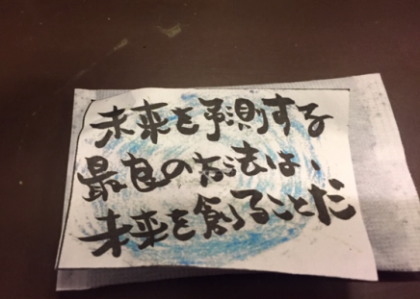 未来を予測する
最良の方法は、
未来を創ることだ